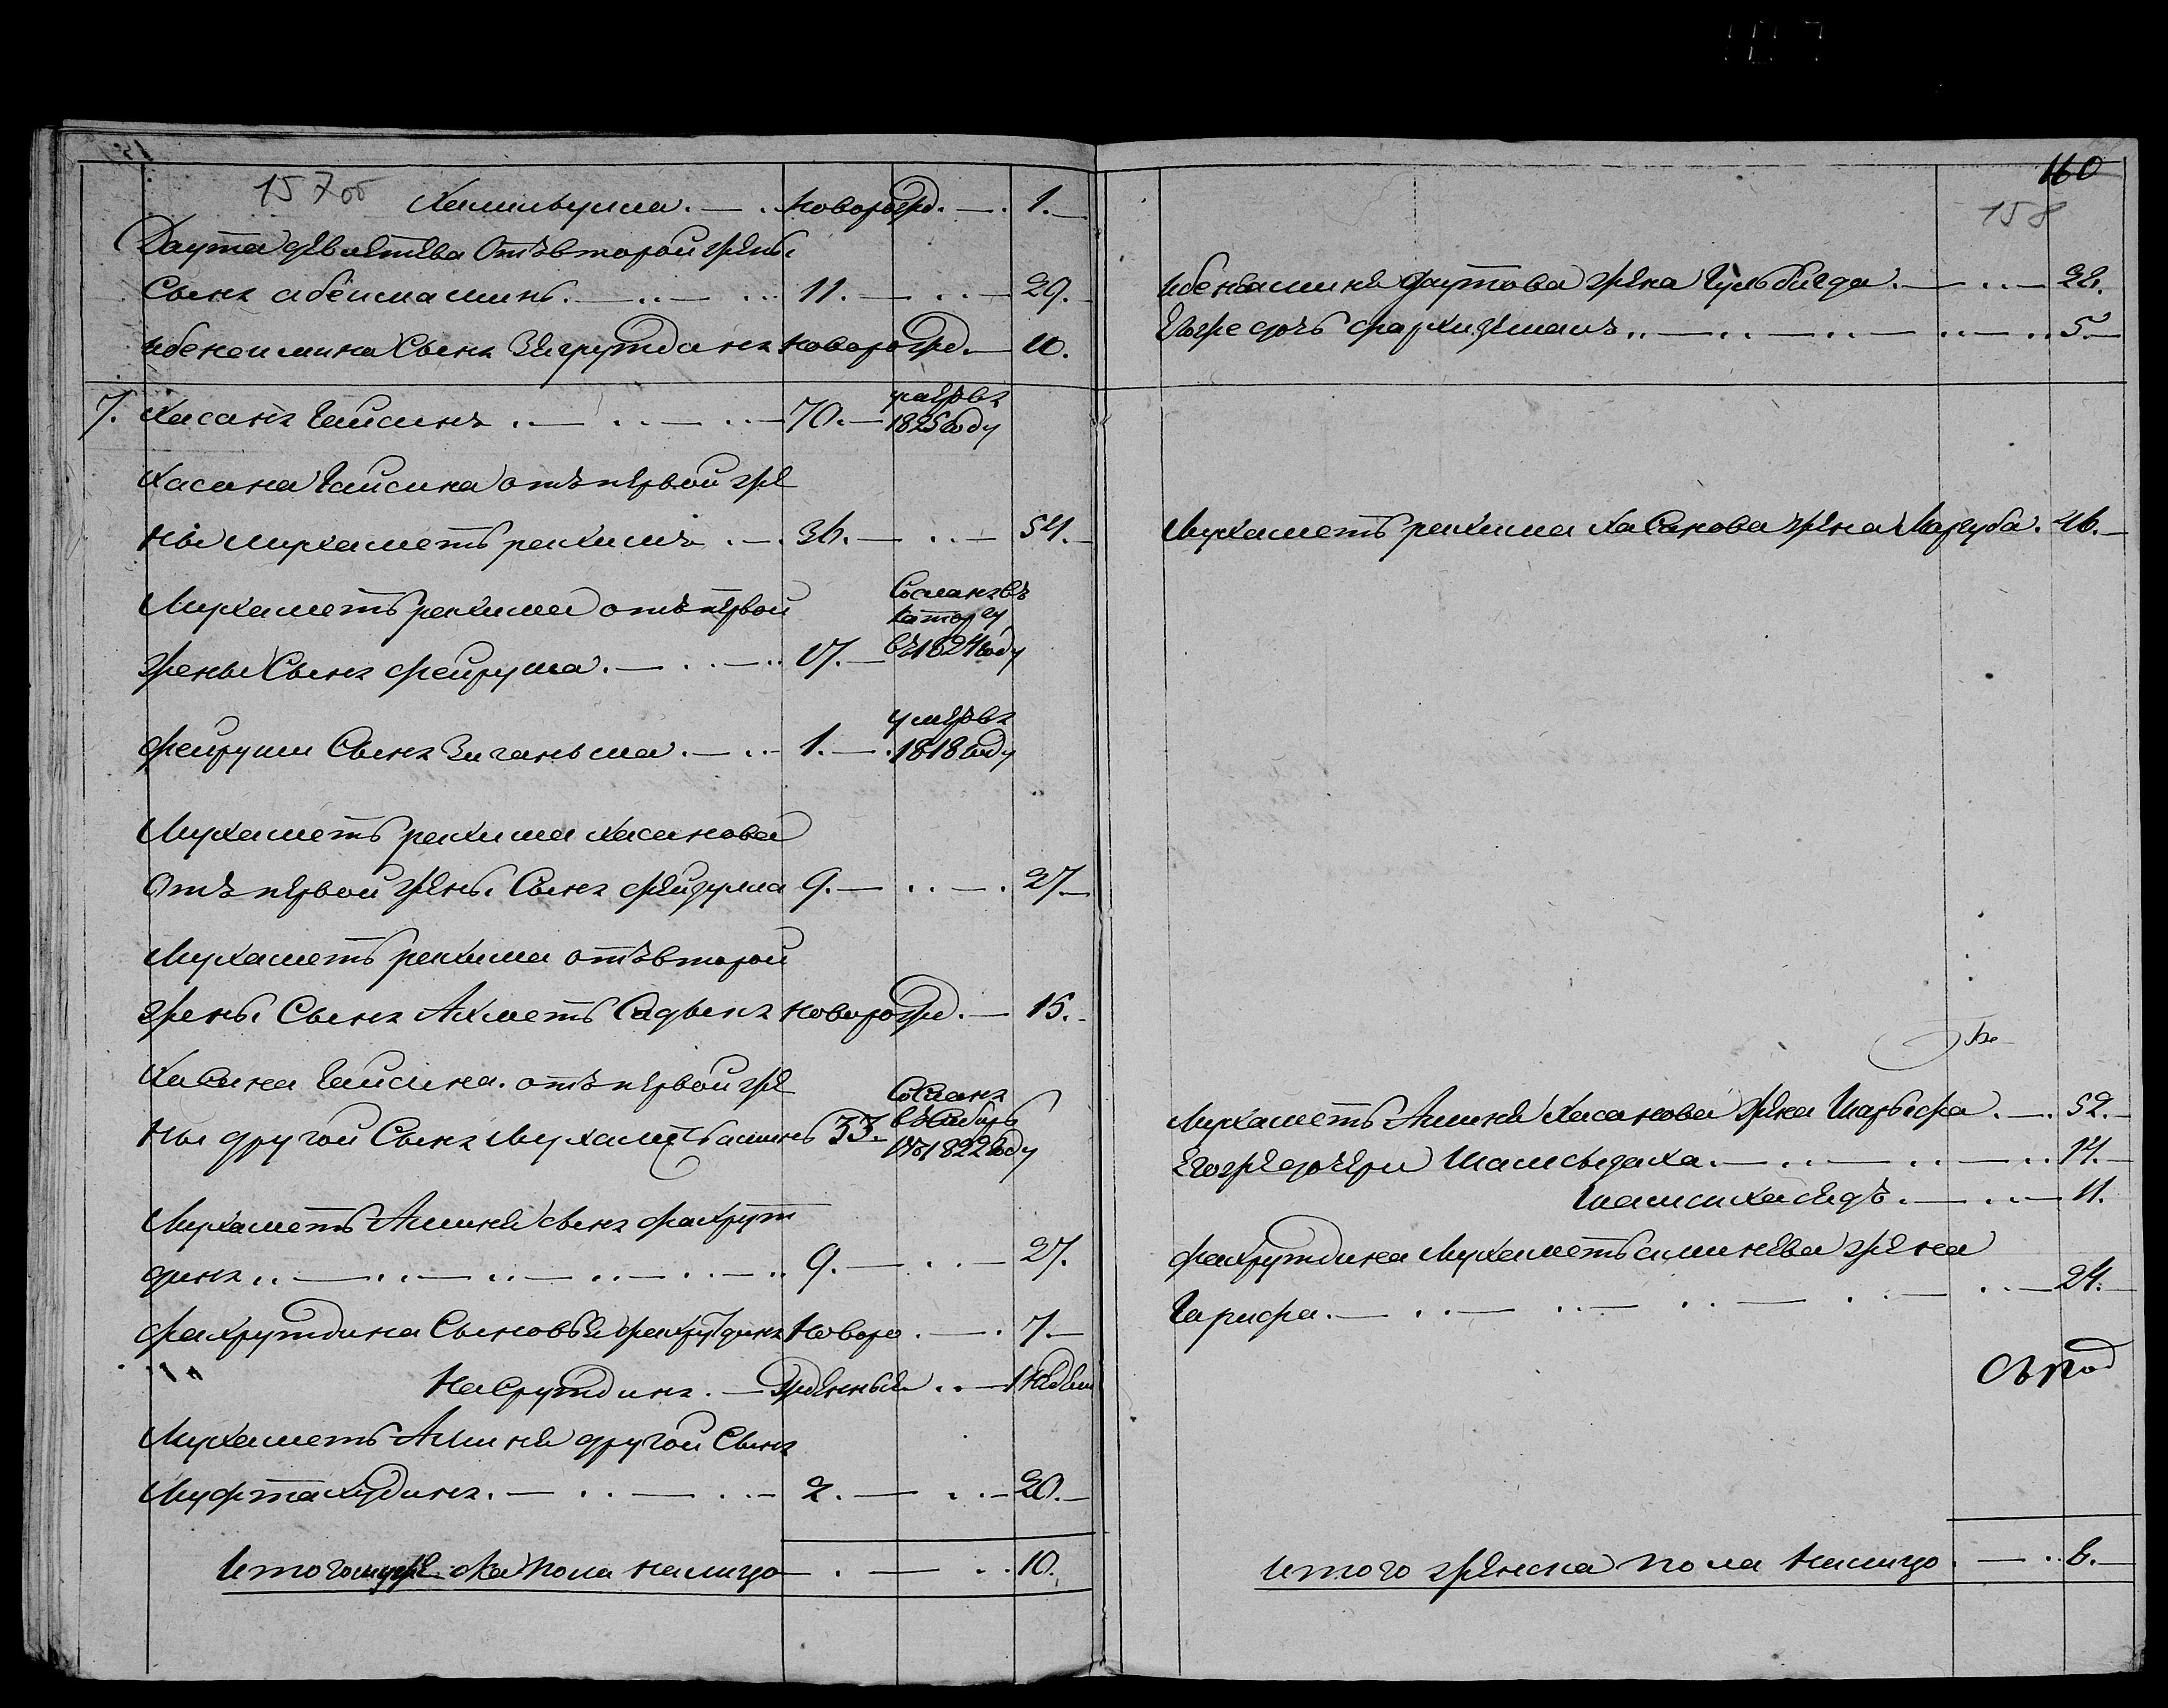 157об
Халиулла. новорожд. 1.
Даута девлетева отъ второй жены
Сынъ абеймаминь. 11. 29.
Ибенеимина Сынъ Зейрутдинъ новорожд. 10.
7. Хасанъ Гайсинъ 70. умеръ въ 1825 году
Хасана Гайсина отъ первой же
ны мухаметь рахимъ 36. 54.
Мухаметь рахима отъ первой
жены Сынъ фейруша. 17. Сосланъ въ каторгу въ 1824 году
фейруши Сынъ Зиганьша. 1. умеръ въ 1818 году
Мухаметь рахима хасанова
отъ первой жены Сынъ фейдулла 9. 27.
Мухаметь рахима отъ второй
жены Сынъ Ахметь Садыкъ новорожд. 15.
Хасана Гайсина. отъ первой же
ны другой Сынъ Мухаметь аминь 33. Сосланъ въ Сибирь 1822 году
Мухаметь Аминя сынъ фахрут
динъ 9. 27.
фахрутдина Сыновья фахрутдинъ новоро 7.
Насрутдинъ. жденные 1 недели
Мухаметь Аминя другой Сынъ
Муфтахудинъ. 2. 20.
Итого мужеска пола налицо 10.
160
158
Ибенаминя даутова жена Гульбигда. 22.
Его же дочь фархизямалъ 5.
Мухаметь рахима Хасанова жена Магруба. 46.
Мухаметь Аминя Хасанова жена Шарыфа. 52.
Его же дочери Шамсыдаха. 14.
Шамсихасядъ. 11.
фахрутдина Мухаметь аминева жена
Гарифа. 24.
Итого женска пола налицо. 6.